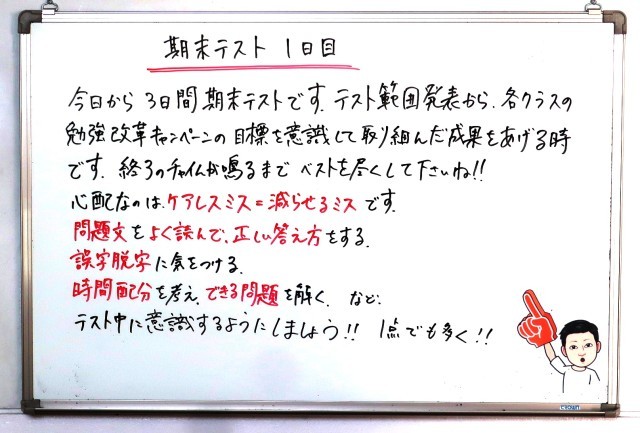 期末テスト 1日目
今日から3日間期末テストです。テスト範囲発表から、各クラスの
勉強改革キャンペーンの目標を意識して取り組んだ成果をあげる時
です。終了のチャイムが鳴るまでベストを尽くして下さいね!!
心配なのは、ケアレスミス=減らせるミスです。
問題文をよく読んで、正しい答え方をする。
誤字脱字に気をつける。
時間配分を考え、できる問題を解く。など、
テスト中に意識するようにしましょう!! 1点でも多く!!